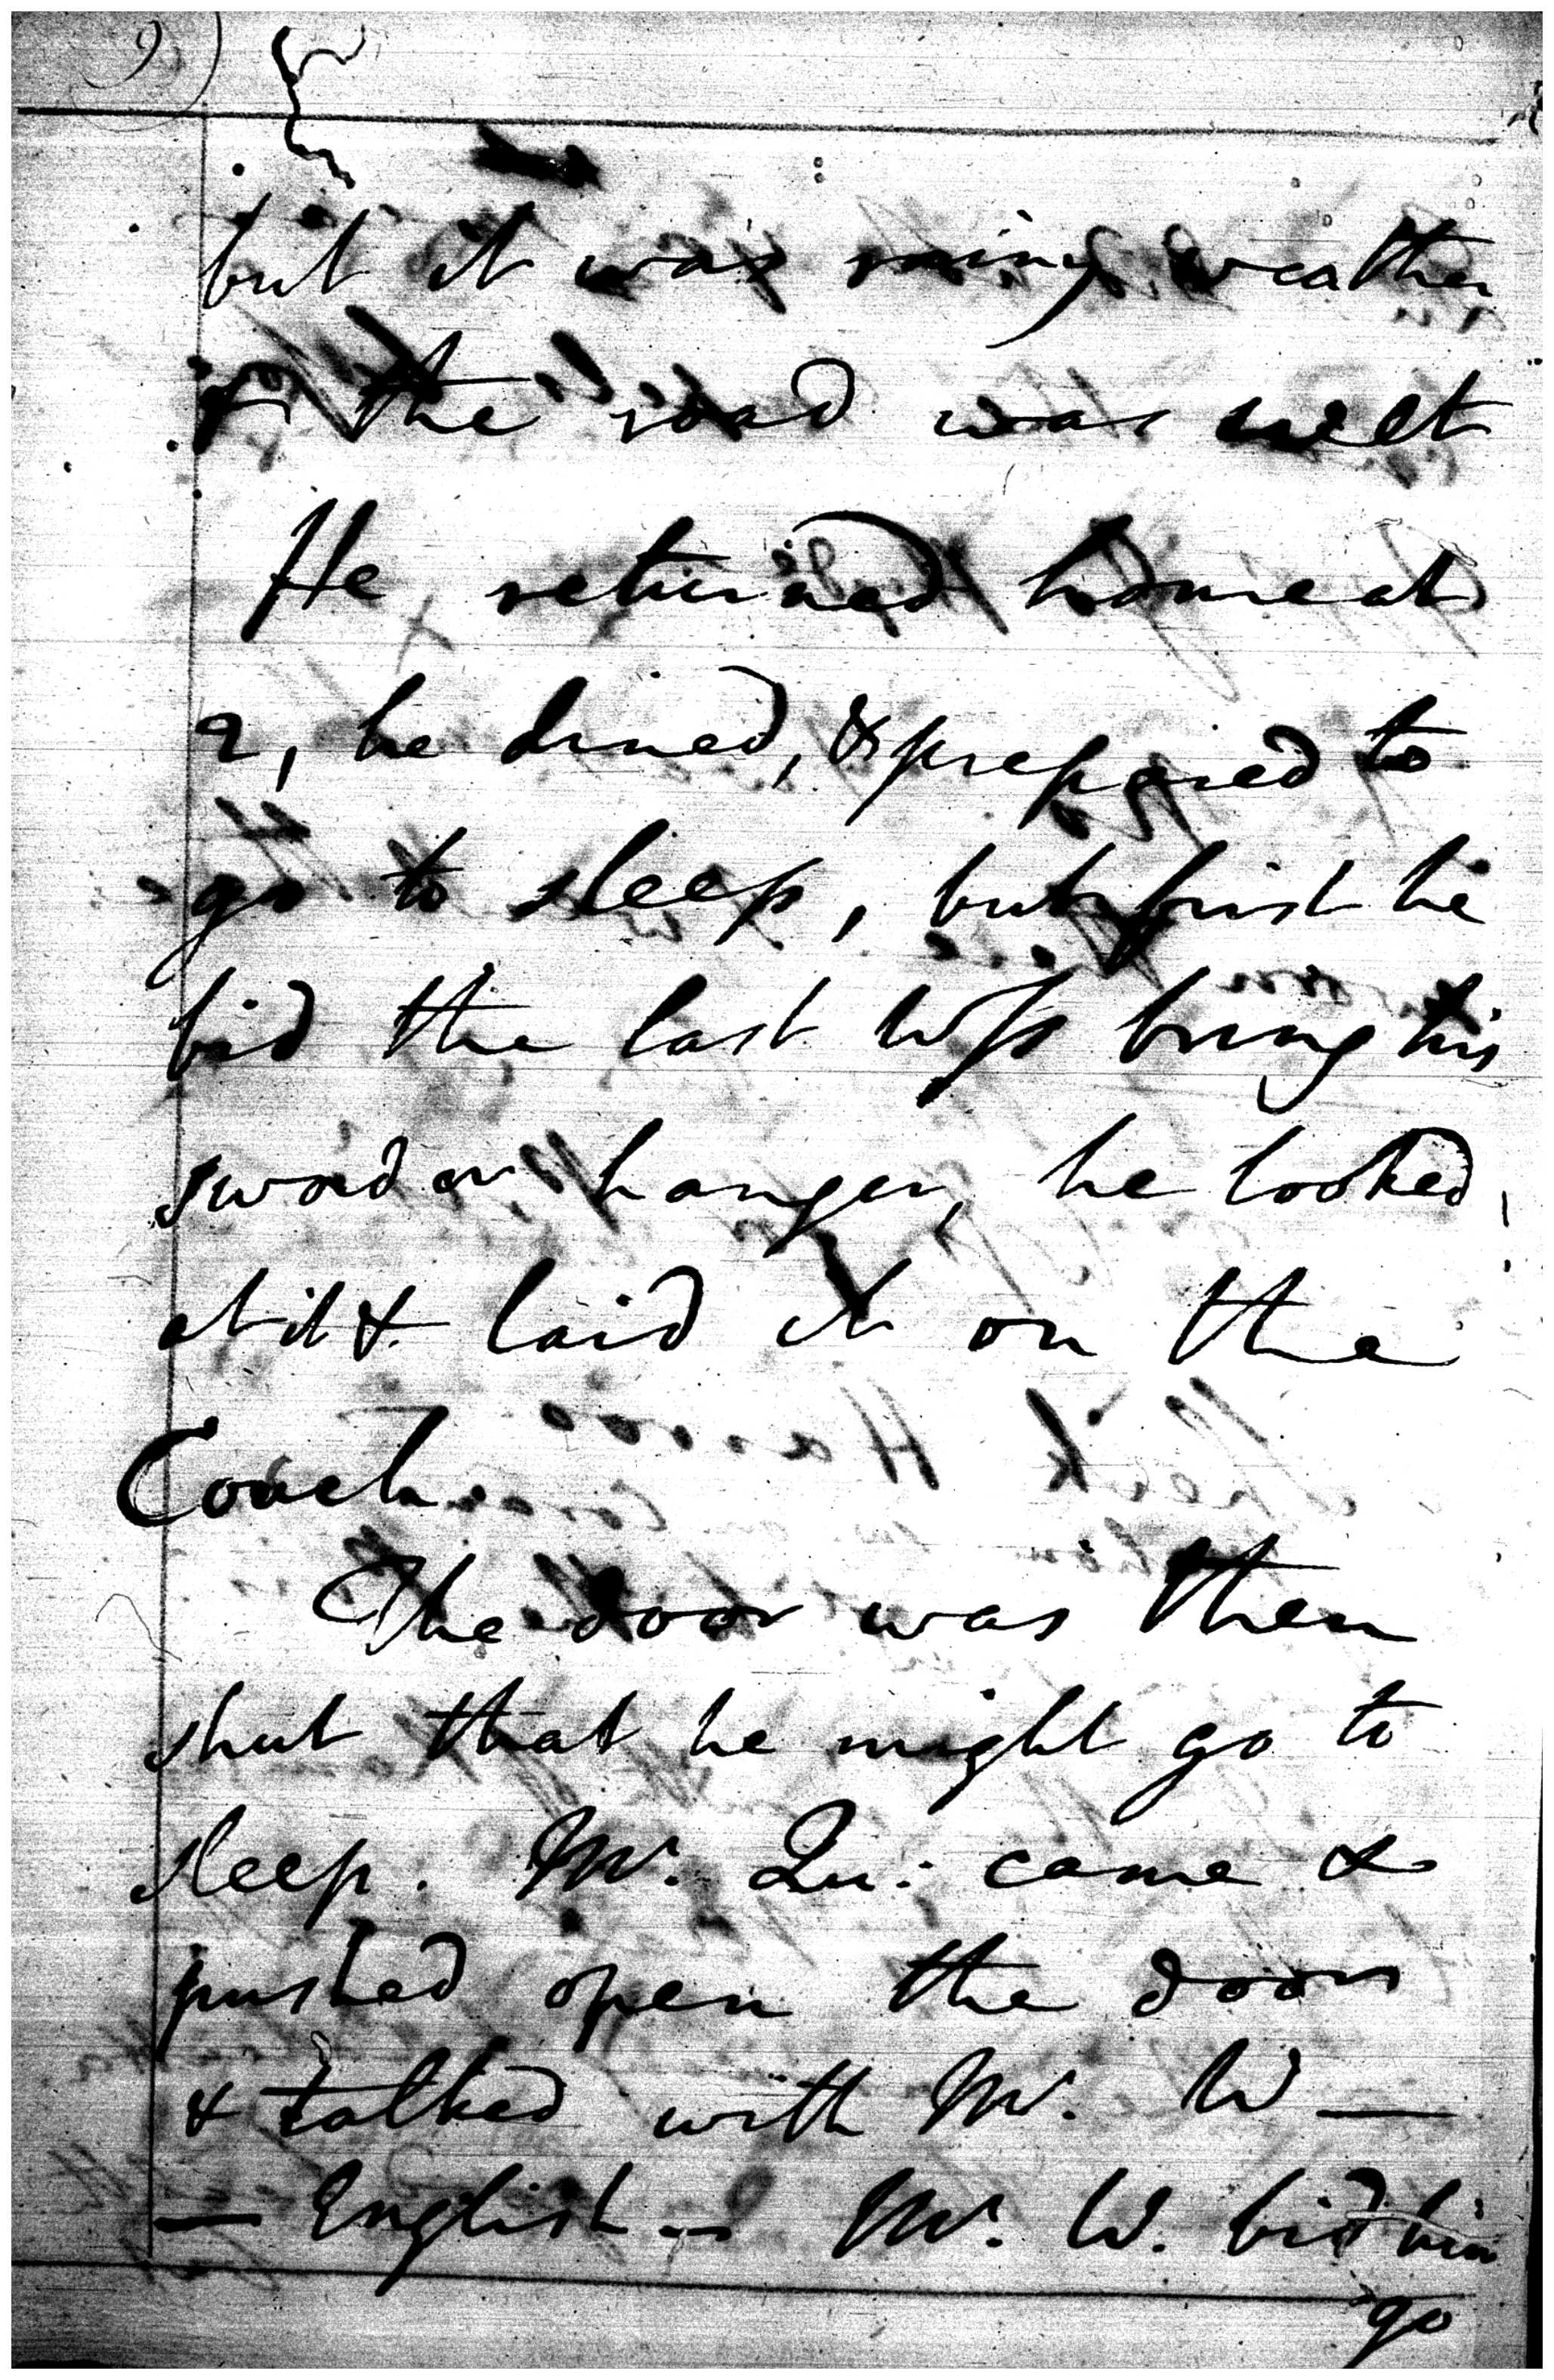 9)
but it was rainy weather
& the road was wet
He returned home at
2, he dined, & prepared to
go to sleep, but first he
bid the last Wss bring his
sword or hanger, he looked,
at it & laid it on the
Couch.
The door was then
shut that he might go to
sleep. Mr. Qu: came &
pushed open the door
& talked with Mr. W —
— English — Mr. W. bid him
go